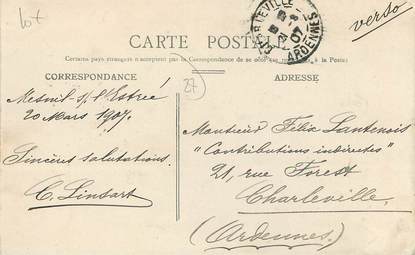 lot
verso
CHARLEVILLE
ARDENNES
CARTE POSTALE
Certains pays étrangers n'acceptent pas la Correspondance de ce côté (se renseigner à la Poste)
CORRESPONDANCE
ADRESSE
27
Mesnil s/ l'Estrée
20 Mars 1907.
Sincères salutations.
C. Linsart
Monsieur Félix Lantenois
"Contributions indirectes"
21, rue Forest
Charleville.
(Ardennes.)